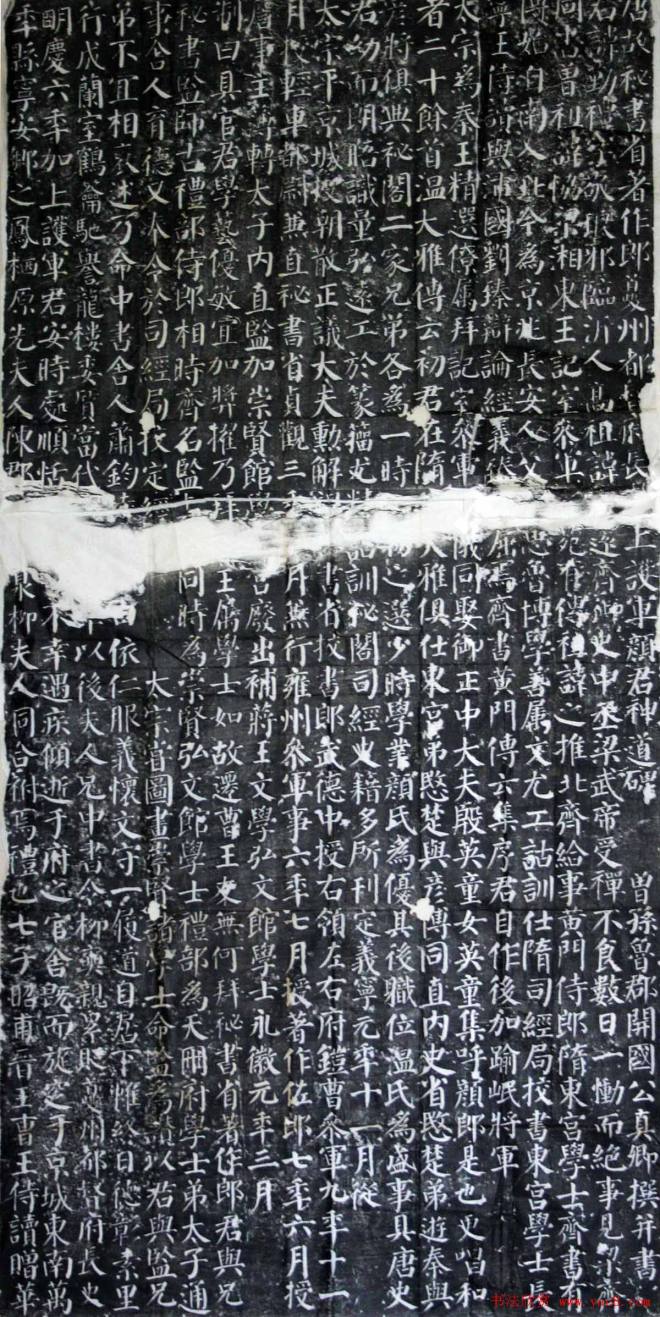 唐故秘書省著作郎夔州都督府長上護軍顏君神道碑 曾孫魯郡開國公真卿撰并書
君諱勤禮字敬琅邪臨沂人高祖諱遠齊御史中丞梁武帝受禪不食數日一慟而絕事見梁齊
周書曾祖諱協梁湘東王記室參軍苑有傳祖諱之推北齊給事黃門侍郎隋東宮學士齊書有
傳始自南入北今為京兆長安人父思魯博學善屬文尤工詁訓仕隋司經局校書東宮學士長
寧王侍讀與沛國劉臻辯論經義臻屈焉齊書黃門傳云集序君自作後加踰岷將軍
太宗為秦王精選僚屬拜記室參軍儀同娶御正中大夫殷英童女英童集呼顏郎是也更唱和
者二十餘首溫大雅傳云初君在隋大雅俱仕東宮弟愍楚與彥博同直內史省愍楚弟遊秦與
彥將俱典秘閣二家兄弟各為一時物之選少時學業顏氏為優其後職位溫氏為盛事具唐史
君幼而朗晤識量弘遠工於篆籀尤精詁訓秘閣司經史籍多所刊定義寧元年十一月從
太宗平京城授朝散正議大夫勳解書省校書郎武德中授右領左右府鎧曹參軍九年十一
月授輕車都尉兼直秘書省貞觀三年月兼行雍州參軍事六年七月授著作佐郎七年六月授
詹事主簿轉太子內直監加崇賢館學宮廢出補蔣王文學弘文館學士永徽元年三月
制曰具官君學藝優敏宜加獎擢乃拜王屬學士如故遷曹王友無何拜秘書省著作郎君與兄
秘書監師古禮部侍郎相時齊名監同時為崇賢弘文館學士禮部為天冊府學士弟太子通
事舍人育德又奉令於司經局校定經太宗嘗圖畫崇賢諸學士命監為讚以君與監兄
弟不宜相褒述乃命中書舍人蕭鈞依仁服義懷文守一履道自居下帷終日德彰素里
行成蘭室鶴籥馳譽龍樓委質當代以後夫人兄中書令柳奭親累貶夔州都督府長史
明慶六年加上護軍君安時處順恬不幸遇疾傾逝于府之官舍既而旋窆于京城東南萬
年縣寧安鄉之鳳栖原先夫人陳郡柳夫人同合祔焉禮也七子昭甫晉王曹王侍讀贈華
书法欣赏 www.yac8.com